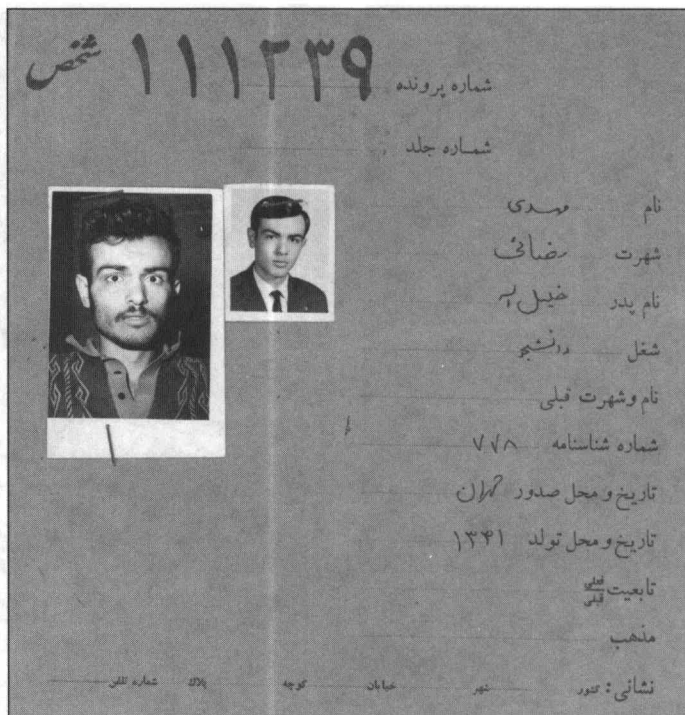 شماره پرونده ۱۱۱۲۳۹ شخص
شماره جلد
نام مهدی
شهرت رضائی
نام پدر خلیل اله
شغل دانشجو
نام و شهرت قبلی
شماره شناسنامه ۷۷۸
تاریخ و محل صدور تهران
تاریخ و محل تولد ۱۳۳۱
تابعیت فعلی قبلی
مذهب
نشانی: کشور شهر خیابان کوچه پلاک شماره تلفن